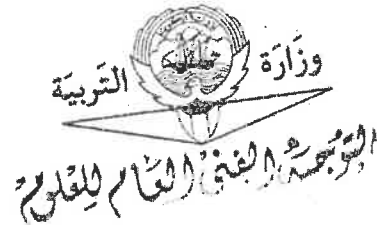 وزَارَة التَّربيَة
التوجيه الفني العام للعلوم